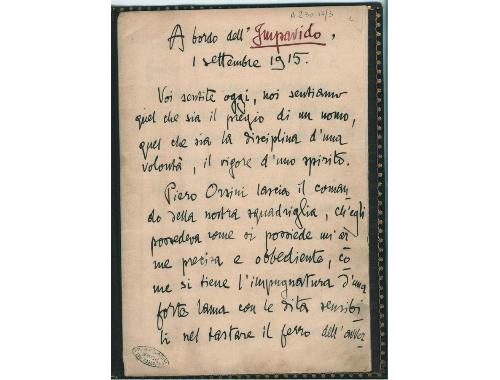 A 230 IV/3
A bordo dell'Impavido,
1 settembre 1915.
Voi sentite oggi, noi sentiamo
quel che sia il pregio di un uomo,
quel che sia la disciplina d'una
volontà, il vigore d'uno spirito.
Piero Orsini lascia il coman-
do della nostra squadriglia, ch'egli
possedeva come si possiede un'ar-
me precisa e obbediente, co-
me si tiene l'impugnatura d'una
forte lama con le dita sensibi-
li nel tastare il ferro dell'avver